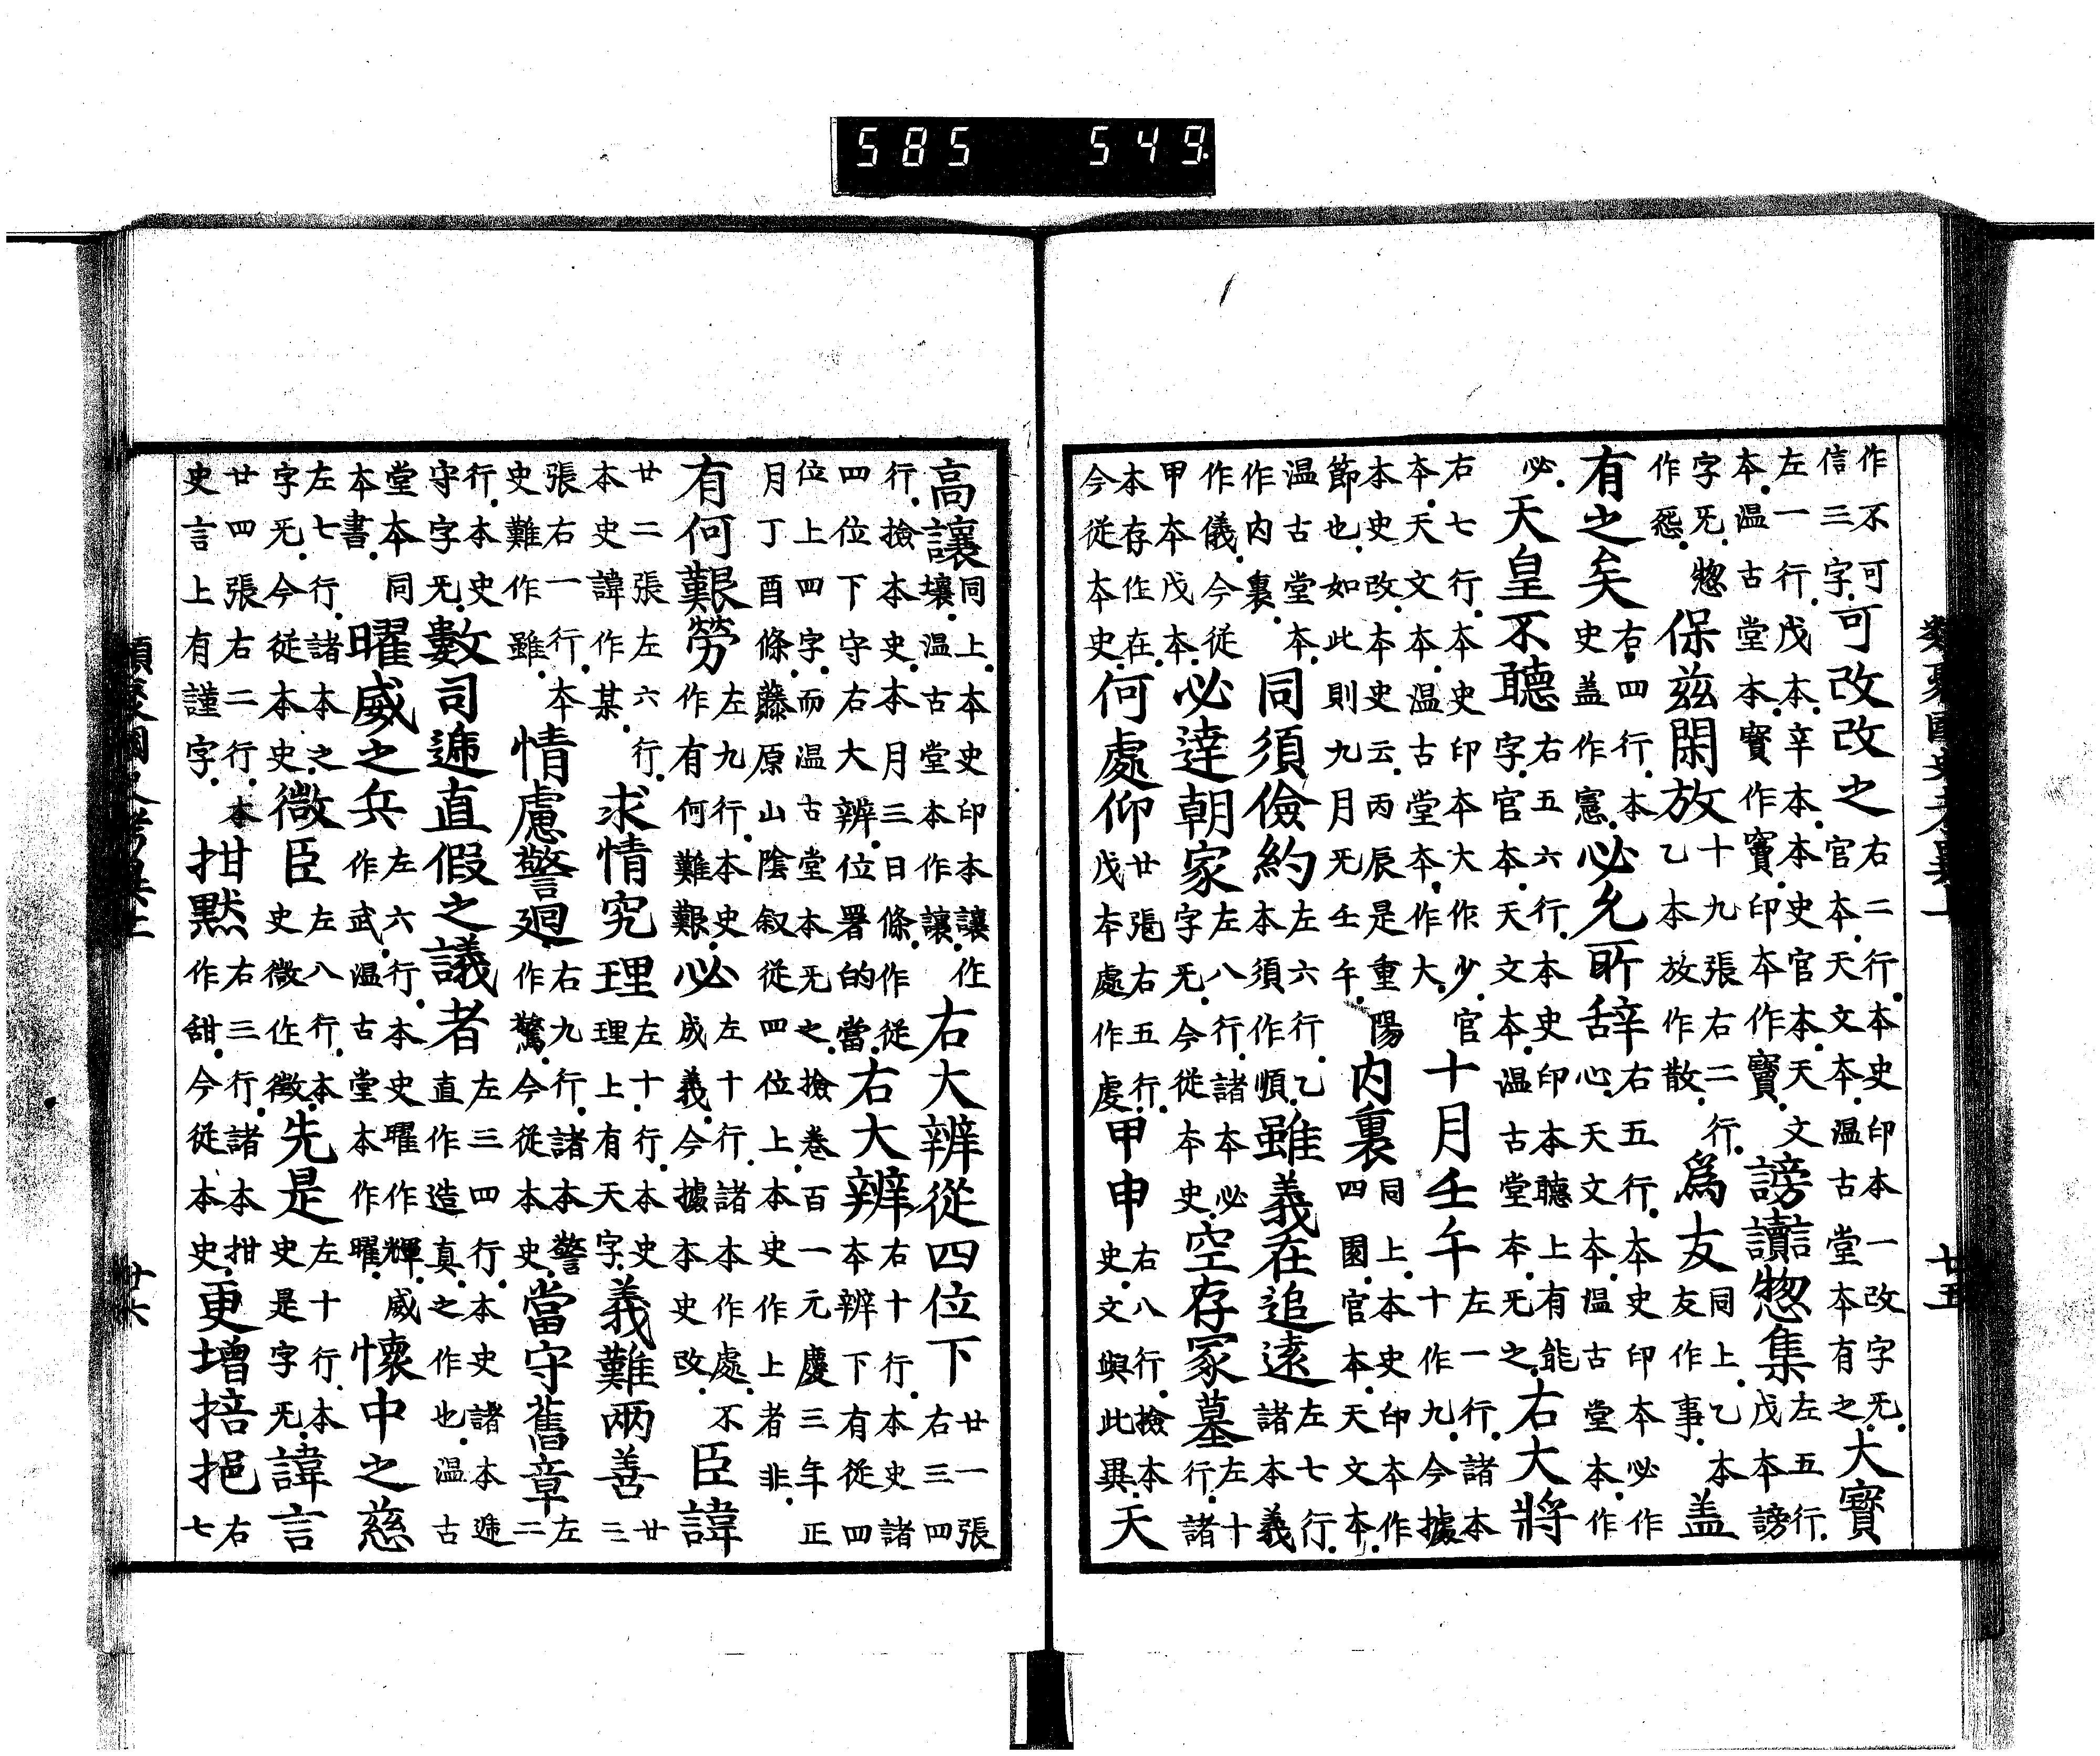 585 549
類聚國史考異 廿五
作不可信三字。可改改之右二行。本史印本一改字旡。官本。天文本。温古堂本有之。大寶
左一行。戊本。辛本。本史官本。天文本。温古堂本。寶作竇。印本作寶。謗讟惣集左五行。戊本謗
字旡。惣作𢙣。保兹閑放十九張右二行。乙本放作散。爲友同上。乙本友作事。盖
有之矣右四行。本史盖作憲。必允所辞右五行。本史印本必作心。天文本。温古堂本。作
必。天皇不聽右五六行。本史印本聽上有能字。官本。天文本。温古堂本旡之。右大將
右七行。本史印本大作少。官本。天文本。温古堂本。作大。十月壬午左一行。諸本十作九。今據
本史改。本史云。丙辰是重陽節也。如此則九月旡壬午。内裏同上。本史印本作四圍。官本。天文本。
温古堂本。作内裏。同須儉約左六行。乙本須作順。雖義在追遠左七行。諸本義
作儀。今從甲本戊本。必達朝家左八行。諸本必字旡。今從本史。空存冢墓左十行。諸
本存作在。今從本史。何處仰廿張右五行。戊本處作䖏。甲申右八行。撿本史。文與此異。天
高讓同上。本史印本讓作壤。温古堂本作讓。右大辨從四位下廿一張右三四
行。撿本史。本月三日條。作從四位下守右大辨。位署的當。右大辨右十行。本史諸本辨下有從四
位上四字。而温古堂本旡之。撿卷百一元慶三年正月丁酉條。藤原山陰叙從四位上。本史作上者非。
有何艱勞左九行。本史作有何難艱。必左十行。諸本作處。不成義。今據本史改。臣諱
廿二張左六行。本史諱作某。求情究理左十行。本史理上。有天字。義難兩善廿三
張右一行。本史難作雖。情慮警廻右九行。諸本警作驚。今從本史。當守舊章左二
行。本史守字旡。數司遞直假之議者左三四行。本史諸本遞直作造真。之作也。温古
堂本同本書。曜威之兵左六行。本史曜作輝。威作武。温古堂本作曜。懷中之慈
左七行。諸本之字旡。今從本史。微臣左八行。本史微作徵。先是左十行。本史是字旡。諱言
廿四張右二行。本史言上有謹字。拑默右三行。諸本拑作甜。今從本史。更增掊挹右七
廿六